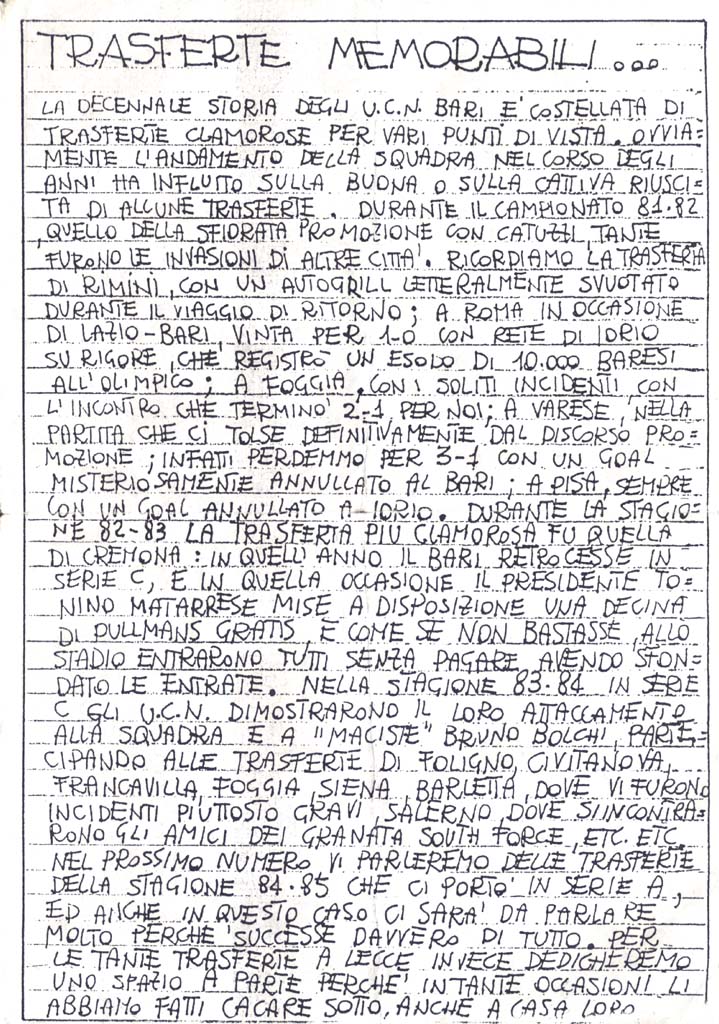 TRASFERTE MEMORABILI...
LA DECENNALE STORIA DEGLI U.C.N. BARI E' COSTELLATA DI
TRASFERTE CLAMOROSE PER VARI PUNTI DI VISTA. OVVIA=
MENTE L'ANDAMENTO DELLA SQUADRA NEL CORSO DEGLI
ANNI HA INFLUITO SULLA BUONA O SULLA CATTIVA RIUSCI=
TA DI ALCUNE TRASFERTE. DURANTE IL CAMPIONATO 81-82
, QUELLO DELLA SFIORATA PROMOZIONE CON CATUZZI, TANTE
FURONO LE INVASIONI DI ALTRE CITTA'. RICORDIAMO LA TRASFERTA
DI RIMINI, CON UN AUTOGRILL LETTERALMENTE SVUOTATO
DURANTE IL VIAGGIO DI RITORNO; A ROMA IN OCCASIONE
DI LAZIO-BARI, VINTA PER 1-0 CON RETE DI IORIO
SU RIGORE, CHE REGISTRO' UN ESODO DI 10.000 BARESI
ALL'OLIMPICO; A FOGGIA, CON I SOLITI INCIDENTI CON
L'INCONTRO CHE TERMINO' 2-1 PER NOI; A VARESE, NELLA
PARTITA CHE CI TOLSE DEFINITIVAMENTE DAL DISCORSO PRO=
MOZIONE; INFATTI PERDEMMO PER 3-1 CON UN GOAL
MISTERIOSAMENTE ANNULLATO AL BARI; A PISA, SEMPRE
CON UN GOAL ANNULLATO A IORIO. DURANTE LA STAGIO=
NE 82-83 LA TRASFERTA PIU' CLAMOROSA FU QUELLA
DI CREMONA: IN QUELL'ANNO IL BARI RETROCESSE IN
SERIE C, E IN QUELLA OCCASIONE IL PRESIDENTE TO=
NINO MATARRESE MISE A DISPOSIZIONE UNA DECINA
DI PULLMANS GRATIS, E COME SE NON BASTASSE, ALLO
STADIO ENTRARONO TUTTI SENZA PAGARE, AVENDO SFON=
DATO LE ENTRATE. NELLA STAGIONE 83-84 IN SERIE
C GLI U.C.N. DIMOSTRARONO IL LORO ATTACCAMENTO
ALLA SQUADRA E A "MACISTE" BRUNO BOLCHI, PARTE=
CIPANDO ALLE TRASFERTE DI FOLIGNO, CIVITANOVA,
FRANCAVILLA, FOGGIA, SIENA, BARLETTA, DOVE VI FURONO
INCIDENTI PIUTTOSTO GRAVI, SALERNO, DOVE SI INCONTRA=
RONO GLI AMICI DEI GRANATA SOUTH FORCE, ETC. ETC.
NEL PROSSIMO NUMERO VI PARLEREMO DELLE TRASFERTE
DELLA STAGIONE 84-85 CHE CI PORTO' IN SERIE A,
ED ANCHE IN QUESTO CASO CI SARA' DA PARLARE
MOLTO PERCHE' SUCCESSE DAVVERO DI TUTTO. PER
LE TANTE TRASFERTE A LECCE INVECE DEDICHEREMO
UNO SPAZIO A PARTE PERCHE' IN TANTE OCCASIONI LI
ABBIAMO FATTI CACARE SOTTO, ANCHE A CASA LORO